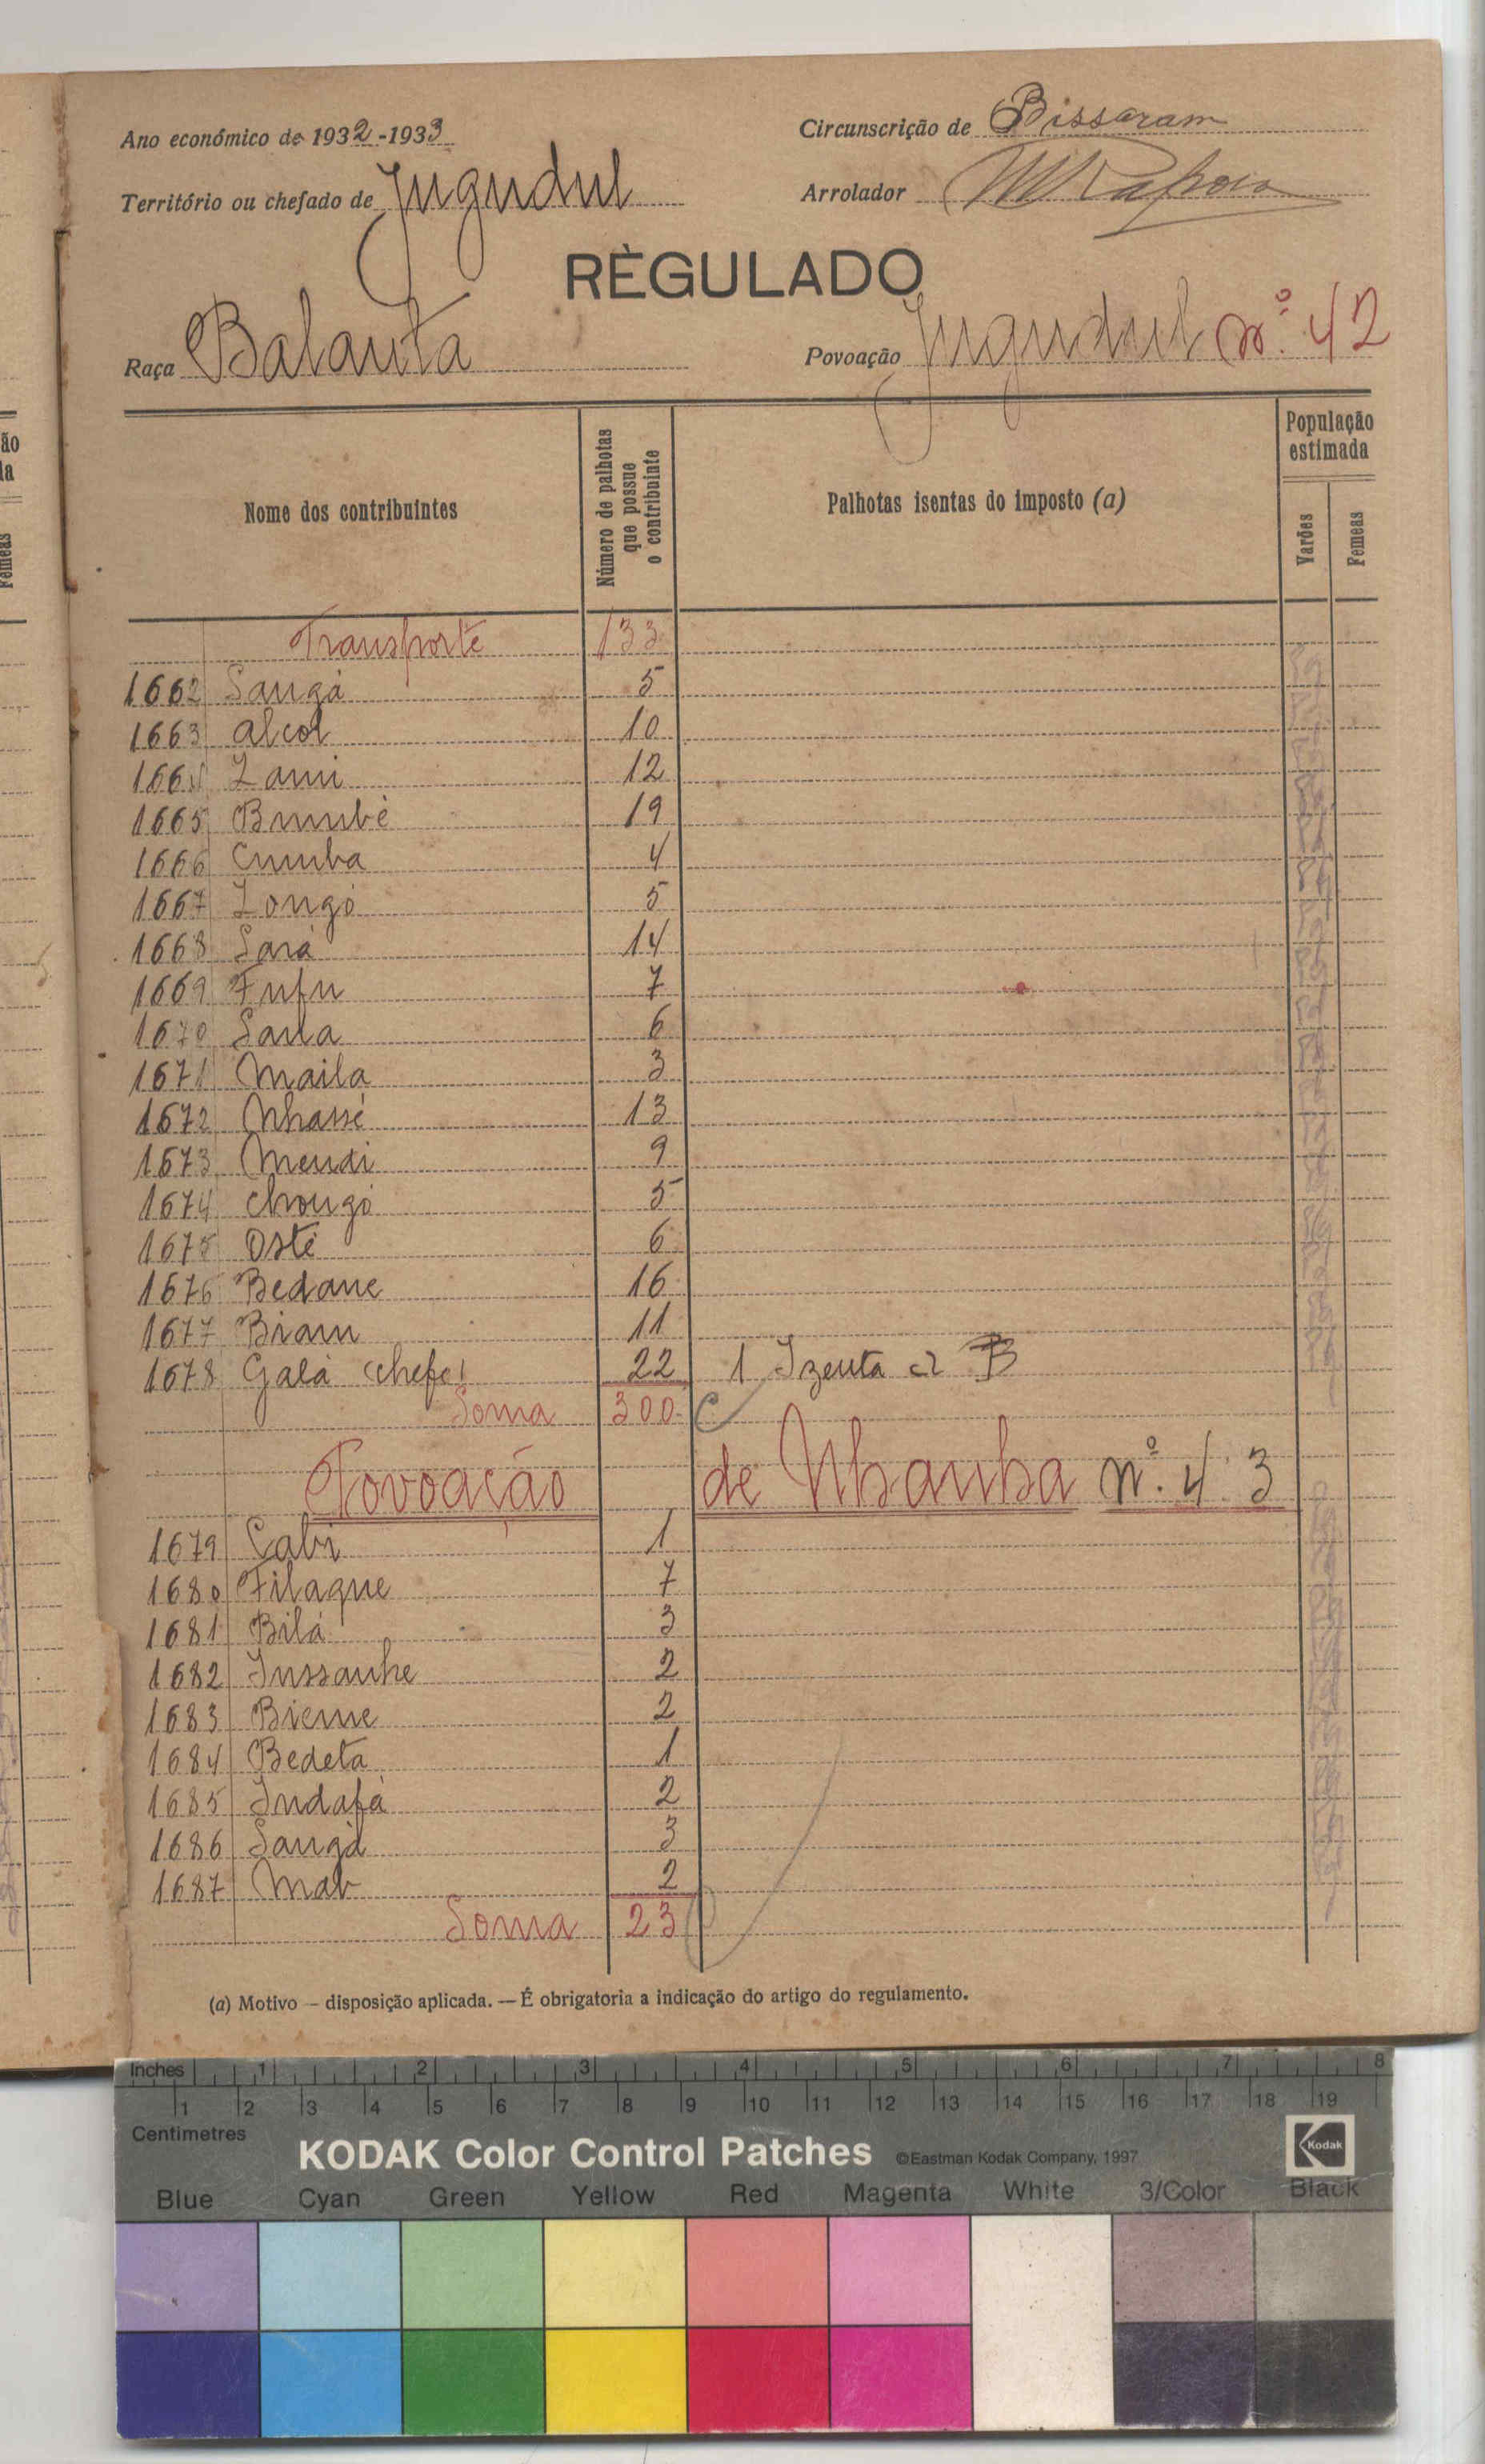 Ano económico de 1932-1933
Circunscrição de Bissoram
Território ou chefado de Jugudul
Arrolador
RÈGULADO
Raça Balanta
Povoação Jugudul nº. 42
Nome dos contribuintes
Número de palhotas que possue o contribuinte
Palhotas isentas do imposto (a)
População estimada
Varões
Femeas
Transporte 133
1662 Sangá 5
1663 Alcol 10
1664 Lami 12
1665 Bumbé 19
1666 Cumba 4
1667 Longó 5
1668 Sará 14
1669 Fufu 7
1670 Sana 6
1671 Maila 3
1672 Nhassé 13
1673 Mendi 9
1674 Chongó 5
1675 Osté 6
1676 Bedane 16
1677 Biam 11
1678 Galá chefe 22 1 Izenta
Soma 300
Povoação de Nhanha nº. 43
1679 Cabi 1
1680 Filaque 7
1681 Bilá 3
1682 Inssanhe 2
1683 Bieme 2
1684 Bedeta 1
1685 Indafá 2
1686 Sangá 3
1687 2
Soma 23
(a) Motivo — disposição aplicada. — É obrigatoria a indicação do artigo do regulamento.
Inches 1 2 3 4 5 6 7 8
1 2 3 4 5 6 7 8 9 10 11 12 13 14 15 16 17 18 19
Centimetres
KODAK Color Control Patches ©Eastman Kodak Company, 1997 Kodak
Blue Cyan Green Yellow Red Magenta White 3/Color Black